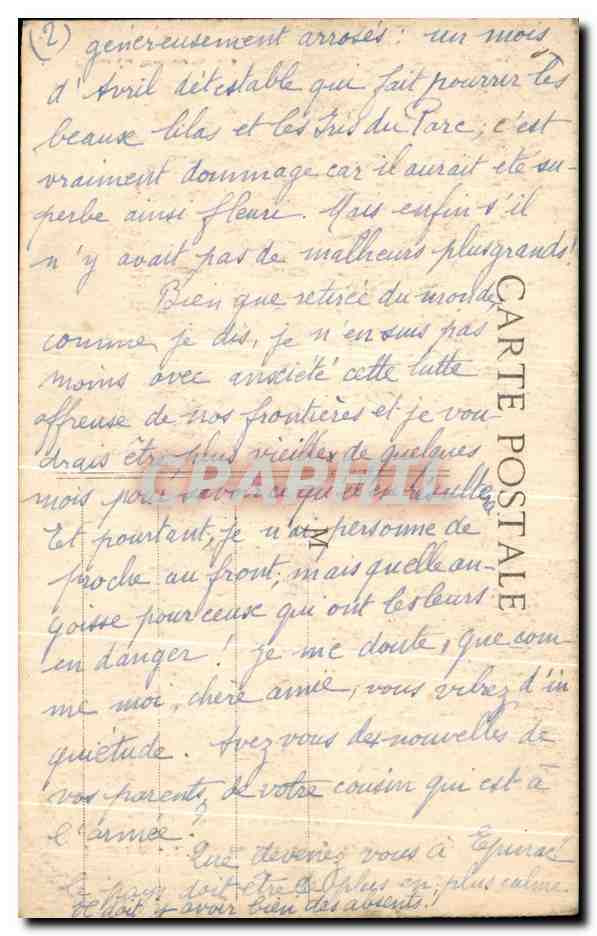 (2) généreusement arrosés : un mois
d'Avril détestable qui fait pourrir les
beaux lilas et les Iris du Parc ; c'est
vraiment dommage car il aurait été su-
perbe ainsi fleuri. Mais enfin s'il
n'y avait pas de malheurs plus grands !
Bien que retirée du monde,
comme je dis, je n'en suis pas
moins avec anxiété cette lutte
affreuse de nos frontières et je vou-
drais être plus vieille de quelques
mois pour savoir ce qui en résultera
Et pourtant, je n'ai personne de
proche au front, mais quelle an-
goisse pour ceux qui ont les leurs
en danger ! Je me doute, que com-
me moi, chère amie, vous vivez d'in
quiétude. Avez vous des nouvelles de
vos parents, de votre cousin qui est à
l'armée ?
Que devenez vous à
le pays doit être de plus en plus calme
Il doit y avoir bien des absents !
CARTE POSTALE
M
CPAPHIL